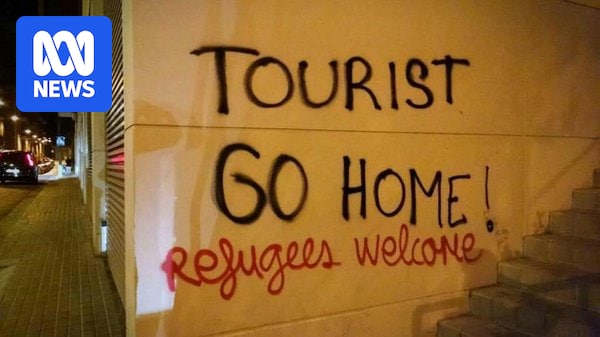 NEWS
TOURIST
GO HOME!
Refugees welcome